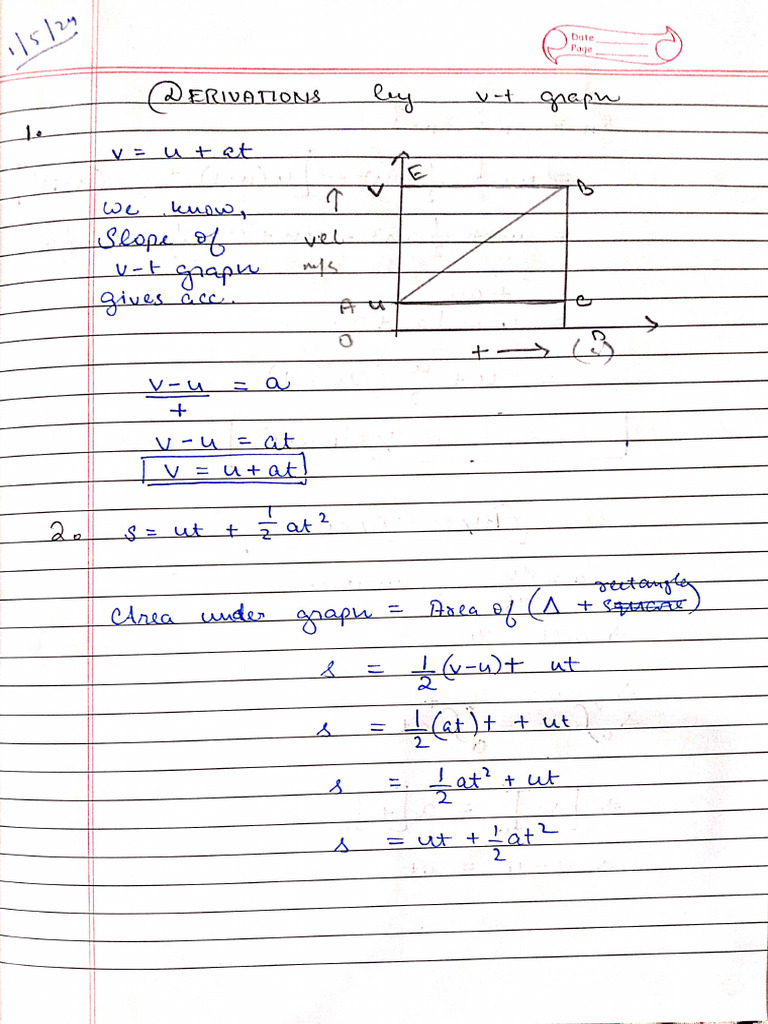 1/5/24
Date
Page
DERIVATIONS by v-t graph
1.
v = u + at
we know,
Slope of
v-t graph
gives acc.
E
V B
↑
vel
m/s
A u C
O D
t → (s)
v-u/t = a
v-u = at
v = u + at
2. s = ut + 1/2 at²
Area under graph = Area of (Δ + square rectangle)
s = 1/2 (v-u)t ut
s = 1/2 (at)t + ut
s = 1/2 at² + ut
s = ut + 1/2 at²